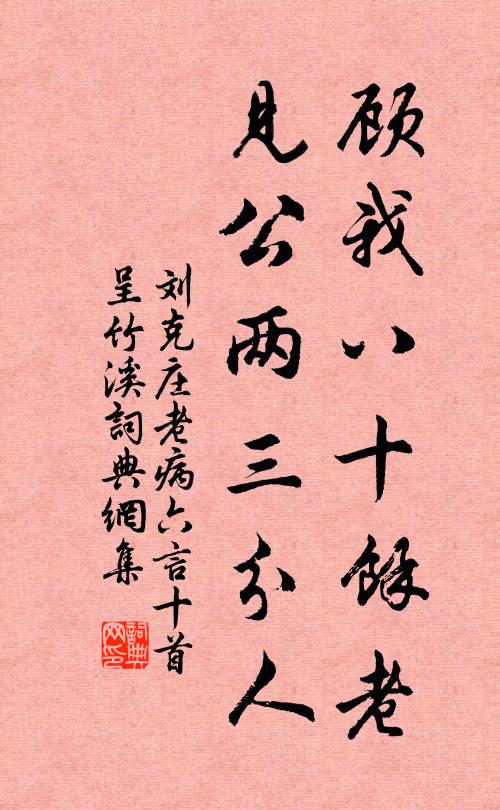 顾我八十馀老
见公两三分人
刘克庄老病六言十首
呈竹溪詞典網集
詞典
网印